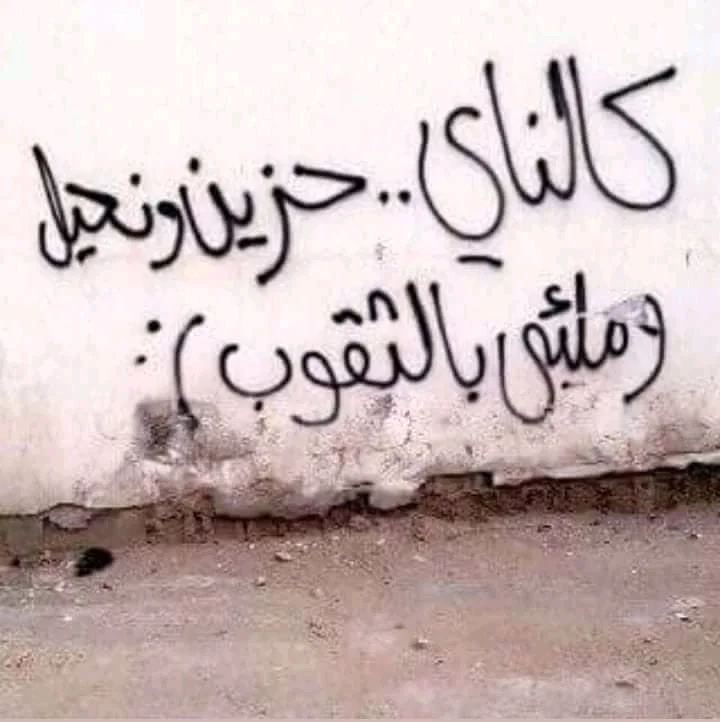 كالناي.. حزين ونحيل
ومليئ بالثقوب ):